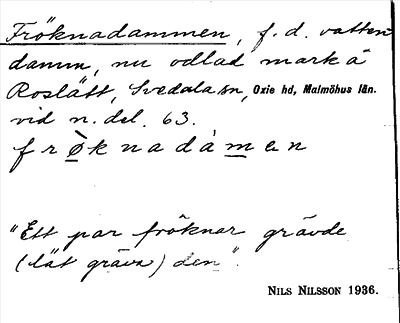 Fröknadammen, f.d. vatten
damm, nu odlad mark å
Roslätt, Svedala sn, Oxie hd, Malmöhus län.
vid n. del. 63.
frø̀knadàmen
"Ett par fröknar grävde
(lät gräva) den".
NILS NILSSON 1936.